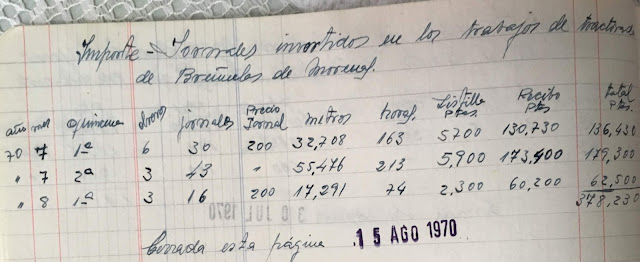 Importe = Jornales invertidos en los trabajos de tractores
de
año mes quincena jornales Precio Jornal metros Ptas. Recibo Ptas total Ptas.
70 7 1ª 6 30 200 32,708 163 5700 130,730 136,430
" 7 2ª 3 43 " 55,476 213 5,900 173,400 179,300
" 8 1ª 3 16 200 17,291 74 2,300 60,200 62,500
378,230
30 JUL 1970
Cerrada esta página 15 AGO 1970